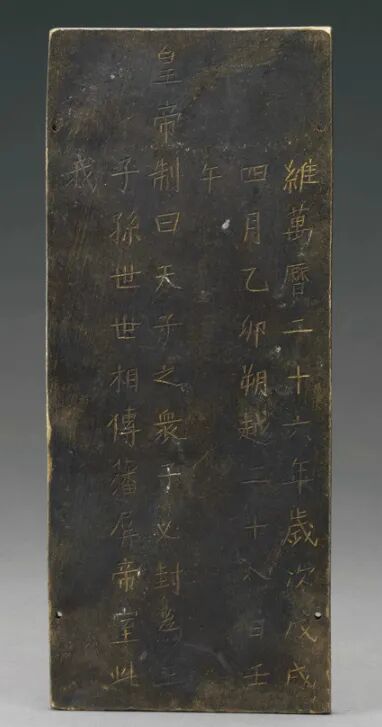 維萬曆二十六年歲次戊戌
四月乙卯朔越二十八日壬
午
皇帝制曰天子之衆子必封為王
子孫世世相傳藩屏帝室此
我